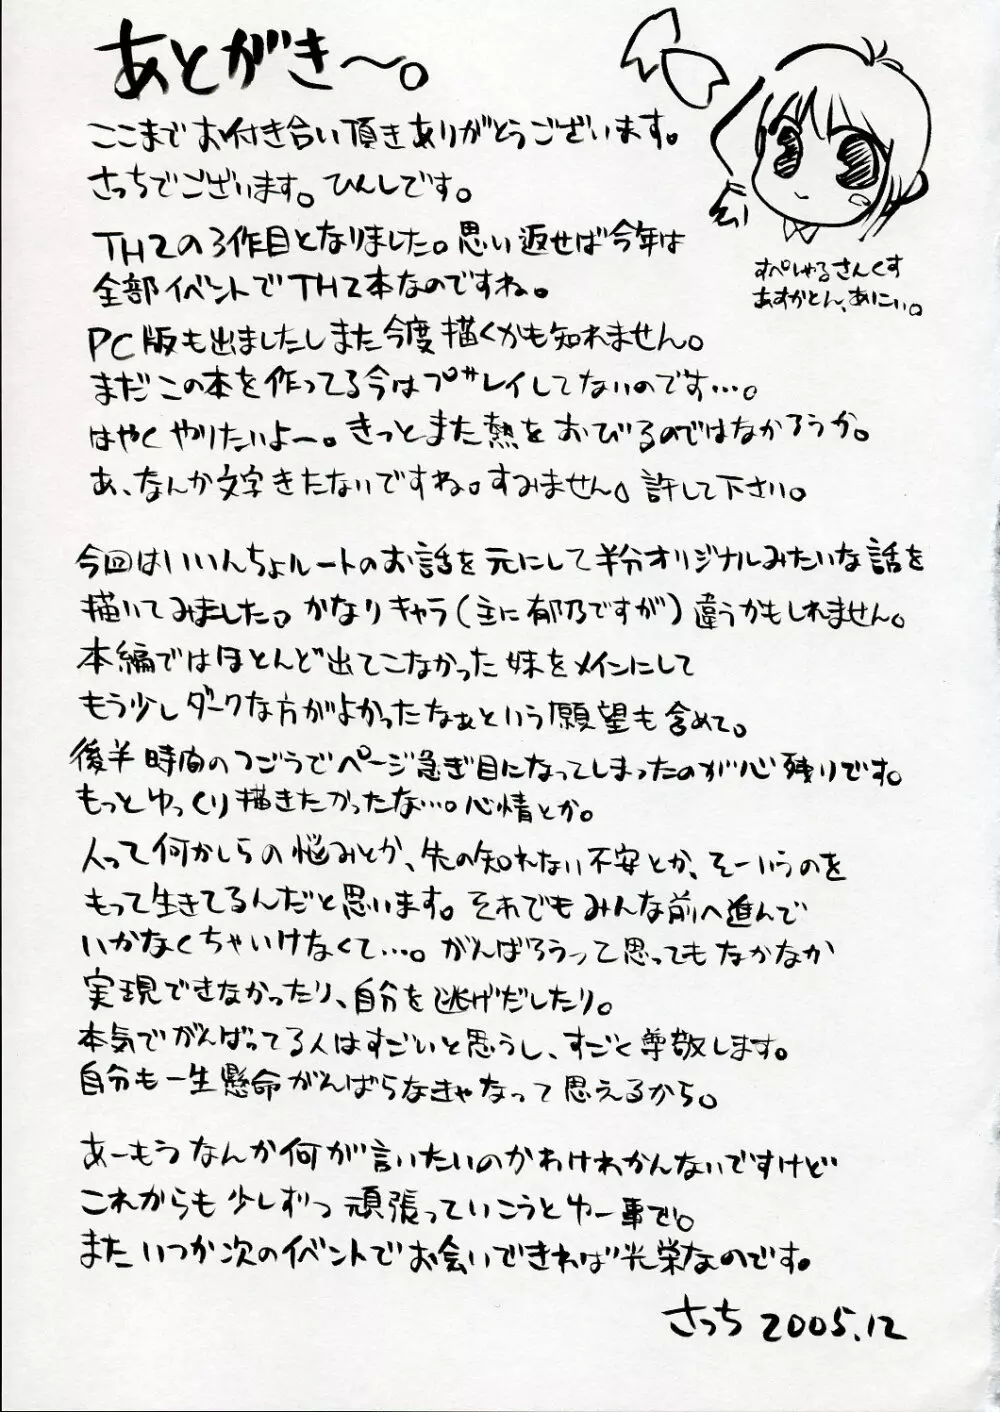 あとがき〜。
ここまでお付き合い頂きありがとうございます。
さっちでございます。ひんしです。
TH2の3作目となりました。思い返せば今年は
全部イベントでTH2本なのですね。
PC版も出ましたしまた今度描くかも知れません。
まだこの本を作ってる今はプレイしてないのです…。
はやくやりたいよ〜。きっとまた熱をおびるのではなかろうか。
あ、なんか文字きたないですね。すみません。許して下さい。
すぺしゃるさんくす
あすかとん、あにぃ。
今回はいいんちょルートのお話を元にして半分オリジナルみたいな話を
描いてみました。かなりキャラ(主に郁乃ですが)違うかもしれません。
本編ではほとんど出てこなかった妹をメインにして
もう少しダークな方がよかったなぁという願望も含めて。
後半時間のつごうでページ急ぎ目になってしまったのが心残りです。
もっとゆっくり描きたかったな…。心情とか。
人って何かしらの悩みとか、先の知れない不安とか、そーいうのを
もって生きてるんだと思います。それでもみんな前へ進んで
いかなくちゃいけなくて…。がんばろうって思ってもなかなか
実現できなかったり、自分を逃げだしたり。
本気でがんばってる人はすごいと思うし、すごく尊敬します。
自分も一生懸命がんばらなきゃなって思えるから。
あーもうなんか何が言いたいのかわけわかんないですけど
これからも少しずつ頑張っていこうとゆー事で。
またいつか次のイベントでお会いできれば光栄なのです。
さっち 2005.12